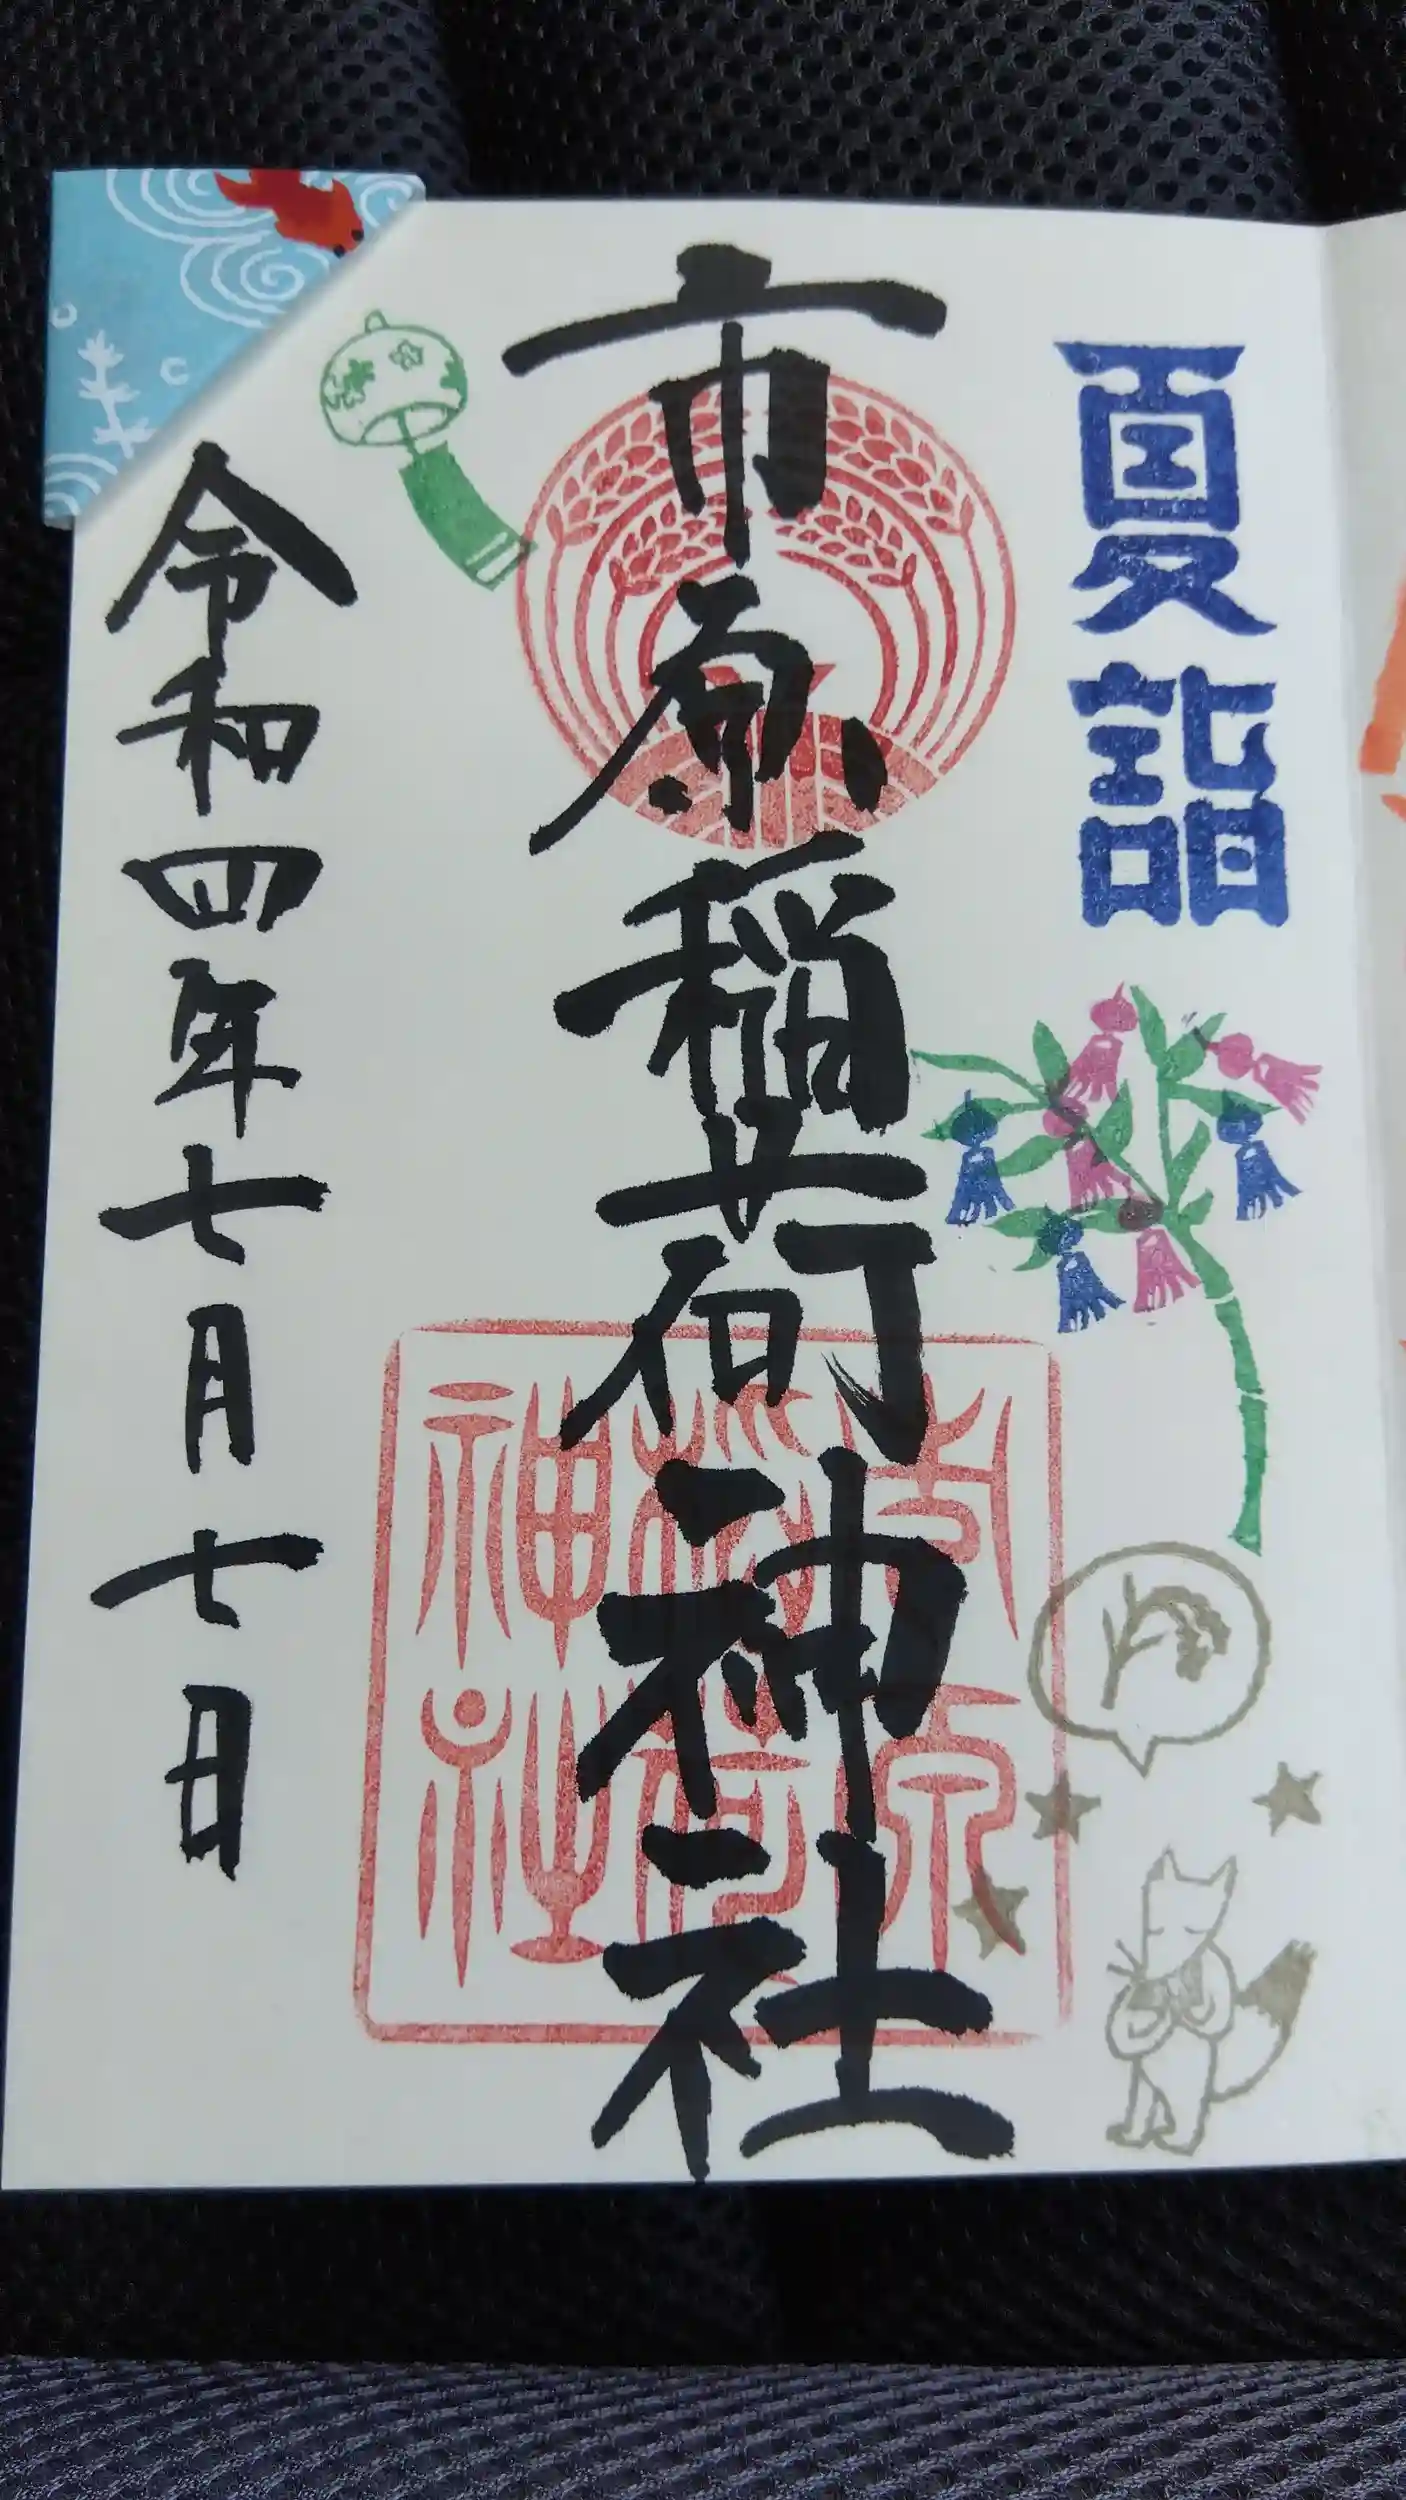 夏詣
市原稲荷神社
市原稲荷神社
令和四年七月七日